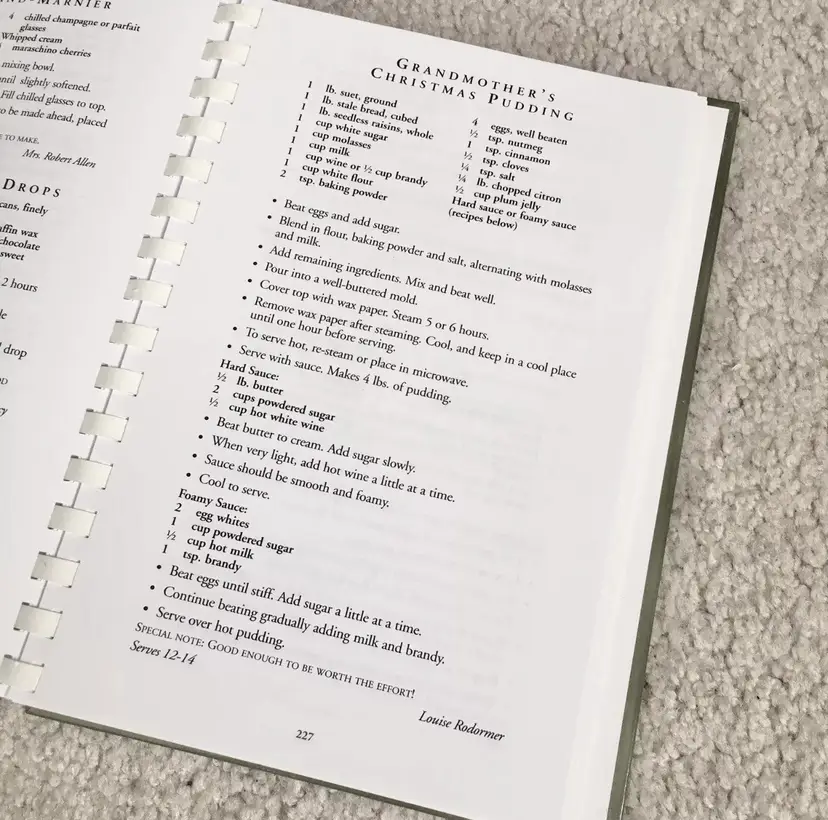 ND-MARNIER
4 chilled champagne or parfait
glasses
Whipped cream
maraschino cherries
mixing bowl.
until slightly softened.
Fill chilled glasses to top.
to be made ahead, placed
E TO MAKE.
Mrs. Robert Allen
DROPS
cans, finely
affin wax
chocolate
sweet
2 hours
le
l drop
OD
cy
GRANDMOTHER'S
CHRISTMAS PUDDING
1 lb. suet, ground
1 lb. stale bread, cubed
1 lb. seedless raisins, whole
1 cup white sugar
1 cup molasses
1 cup milk
1 cup wine or ½ cup brandy
1 cup white flour
2 tsp. baking powder
4 eggs, well beaten
½ tsp. nutmeg
1 tsp. cinnamon
½ tsp. cloves
¼ tsp. salt
¼ lb. chopped citron
½ cup plum jelly
Hard sauce or foamy sauce
(recipes below)
• Beat eggs and add sugar.
• Blend in flour, baking powder and salt, alternating with molasses
and milk.
• Add remaining ingredients. Mix and beat well.
• Pour into a well-buttered mold.
• Cover top with wax paper. Steam 5 or 6 hours.
• Remove wax paper after steaming. Cool, and keep in a cool place
until one hour before serving.
• To serve hot, re-steam or place in microwave.
• Serve with sauce. Makes 4 lbs. of pudding.
Hard Sauce:
½ lb. butter
2 cups powdered sugar
½ cup hot white wine
• Beat butter to cream. Add sugar slowly.
• When very light, add hot wine a little at a time.
• Sauce should be smooth and foamy.
• Cool to serve.
Foamy Sauce:
2 egg whites
1 cup powdered sugar
½ cup hot milk
1 tsp. brandy
• Beat eggs until stiff. Add sugar a little at a time.
• Continue beating gradually adding milk and brandy.
• Serve over hot pudding.
SPECIAL NOTE: GOOD ENOUGH TO BE WORTH THE EFFORT!
Serves 12-14
Louise Rodormer
227